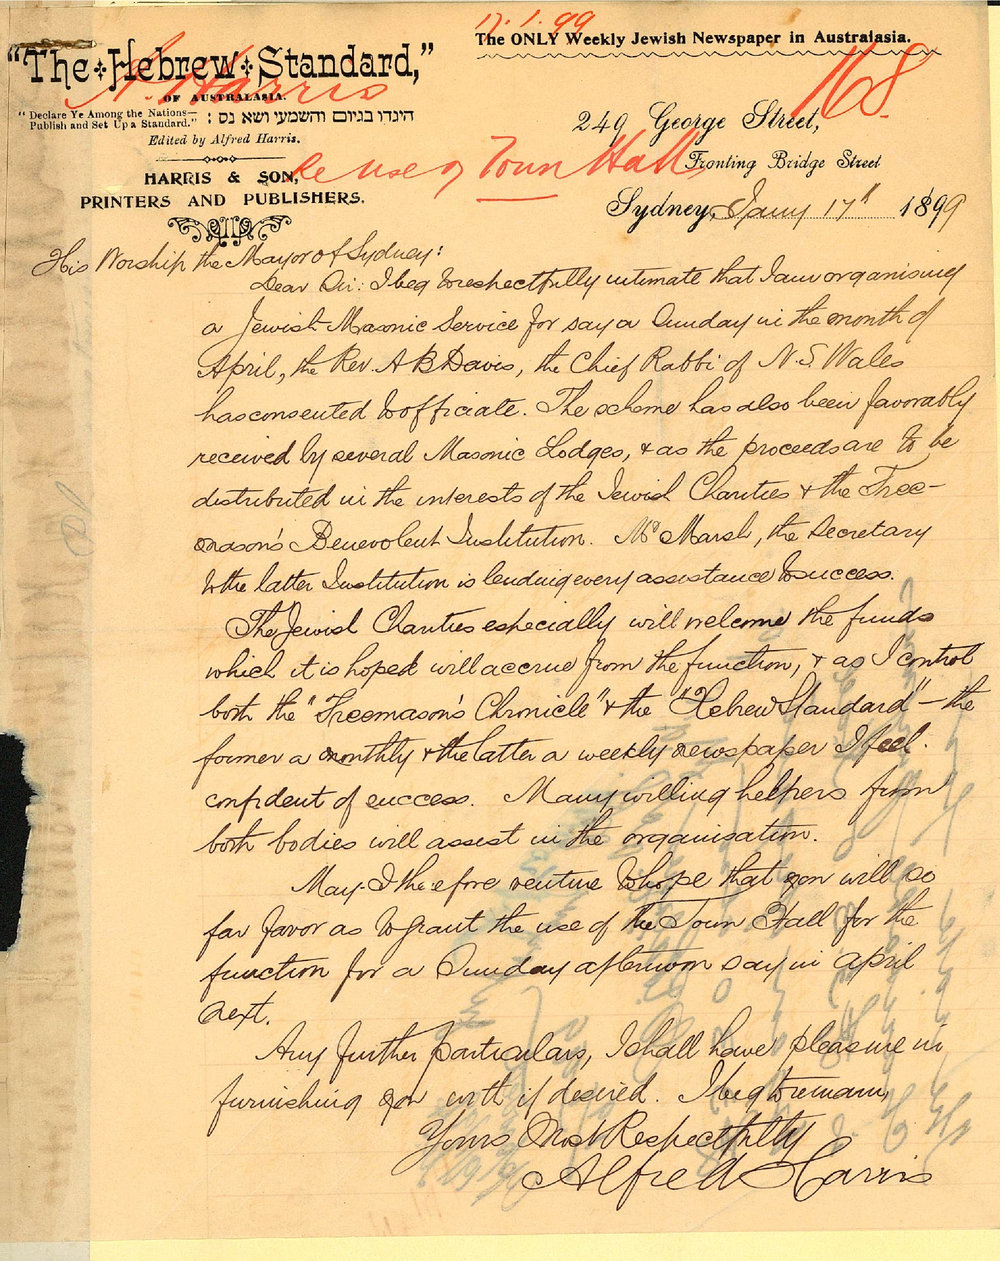 17.1.99
The ONLY Weekly Jewish Newspaper in Australasia.
"The Hebrew Standard,"
OF AUSTRALASIA.
A. Harris
168
"Declare Ye Among the Nations—
Publish and Set Up a Standard."
הינדו בגוים והשמעי ושא נס :
Edited by Alfred Harris.
HARRIS & SON,
PRINTERS AND PUBLISHERS.
249 George Street,
Fronting Bridge Street
re use of Town Hall
Sydney, Jany 17th 1899
His Worship the Mayor of Sydney:
Dear Sir: I beg to respectfully intimate that I am organising
a Jewish Masonic Service for say a Sunday in the month of
April, the Rev. A B Davis, the Chief Rabbi of N. S. Wales
has consented to officiate. The scheme has also been favorably
received by several Masonic Lodges, & as the proceeds are to be
distributed in the interests of the Jewish Charities & the Free-
mason's Benevolent Institution. Mr Marsh, the Secretary
to the latter Institution is lending every assistance to success.
The Jewish Charities especially will welcome the funds
which it is hoped will accrue from the function, & as I control
both the "Freemason's Chronicle" & the "Hebrew Standard" — the
former a monthly & the latter a weekly newspaper I feel
confident of success. Many willing helpers from
both bodies will assist in the organisation.
May I therefore venture to hope that you will so
far favor as to grant the use of the Town Hall for the
function for a Sunday afternoon say in April
next.
Any further particulars, I shall have pleasure in
furnishing you with if desired. I beg to remain,
Yours Most Respectfully
Alfred Harris